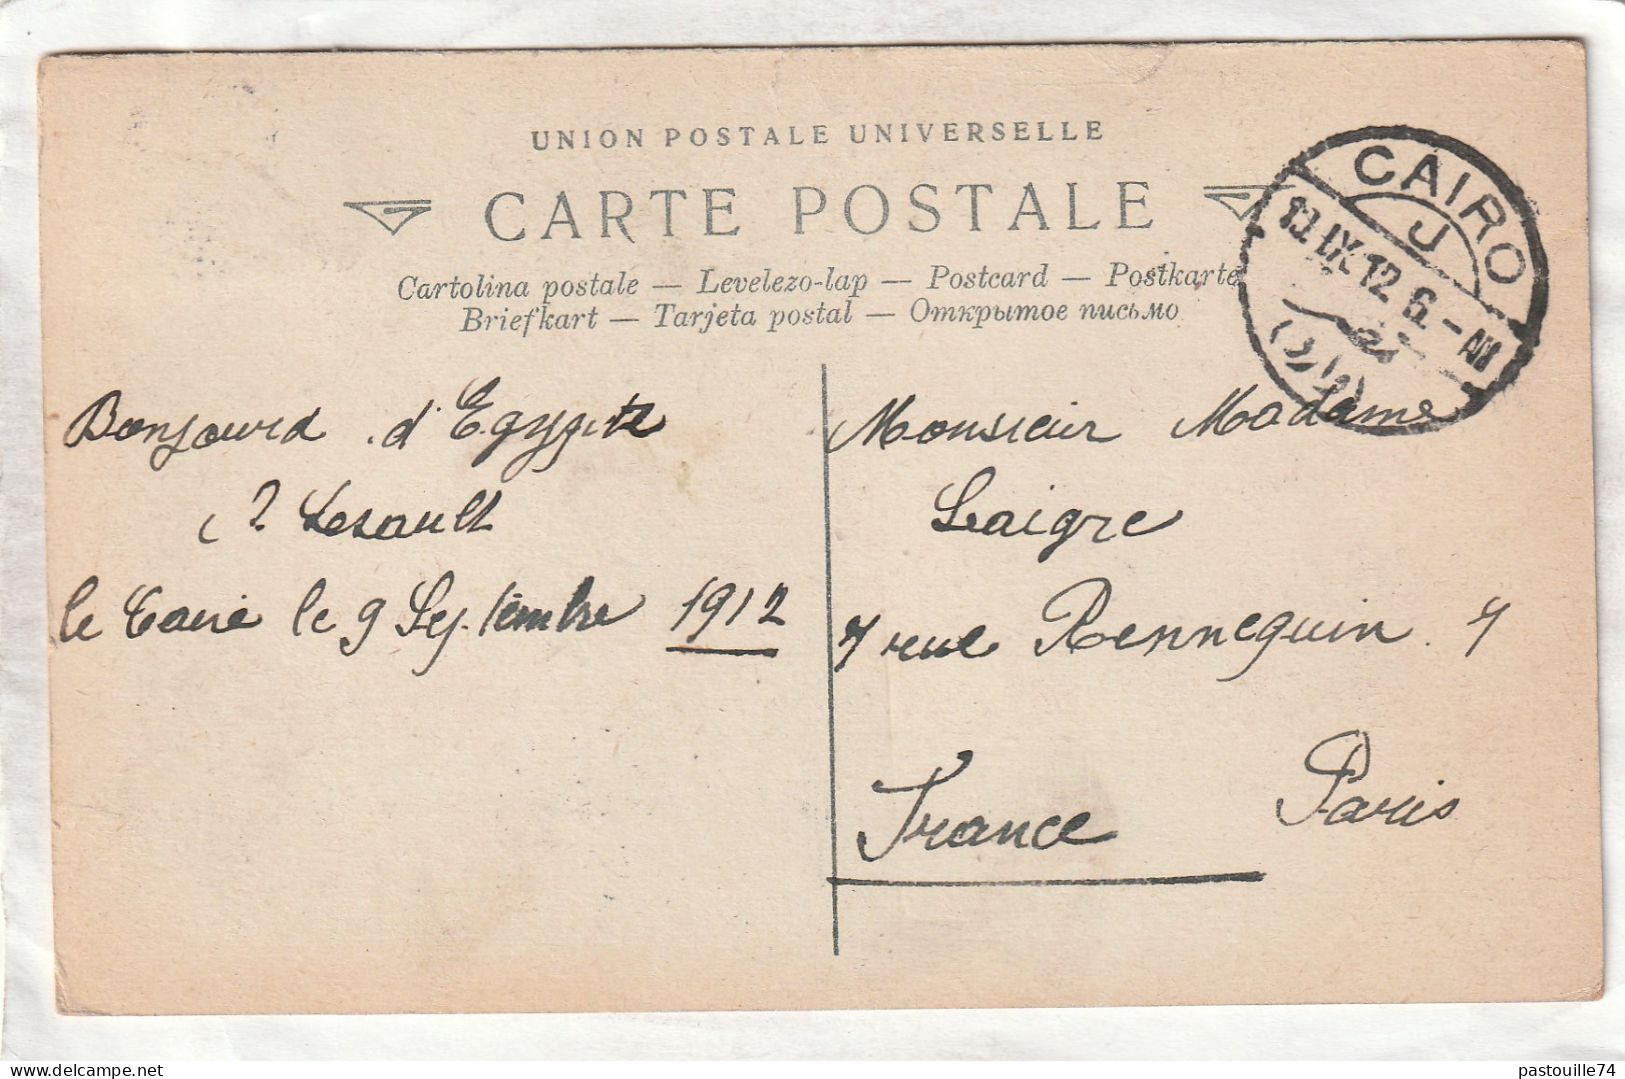 UNION POSTALE UNIVERSELLE
CARTE POSTALE
Cartolina postale — Levelezo-lap — Postcard — Postkarte
Briefkart — Tarjeta postal — Открытое письмо
CAIRO
J
IX 12 6 - AM
Bonjourd d'Egypte
Lesault
le Caire le 9 Septembre 1912
Monsieur Madame
Laigre
7 rue Rennequin 7
Paris
France
pastouille74